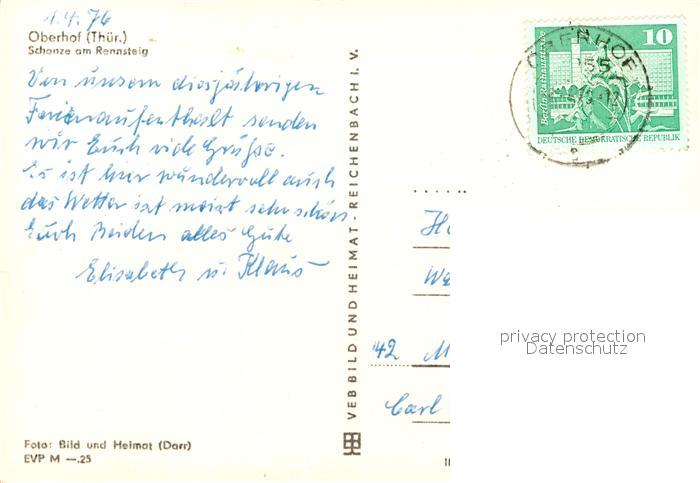 1.4.76
Oberhof (Thür.)
Schanze am Rennsteig
Von unserm diesjährigen
Ferienaufenthalt senden
wir Euch viele Grüße.
Es ist hier wundervoll auch
das Wetter ist meist sehr schön
Euch Beiden alles Gute
Elisabeth u. Klaus
Foto: Bild und Heimat (Darr)
EVP M —.25
VEB BILD UND HEIMAT · REICHENBACH I. V.
OBERHOF
655
10
Berlin, Rathausstraße
DEUTSCHE DEMOKRATISCHE REPUBLIK
42 M
Carl
privacy protection
Datenschutz